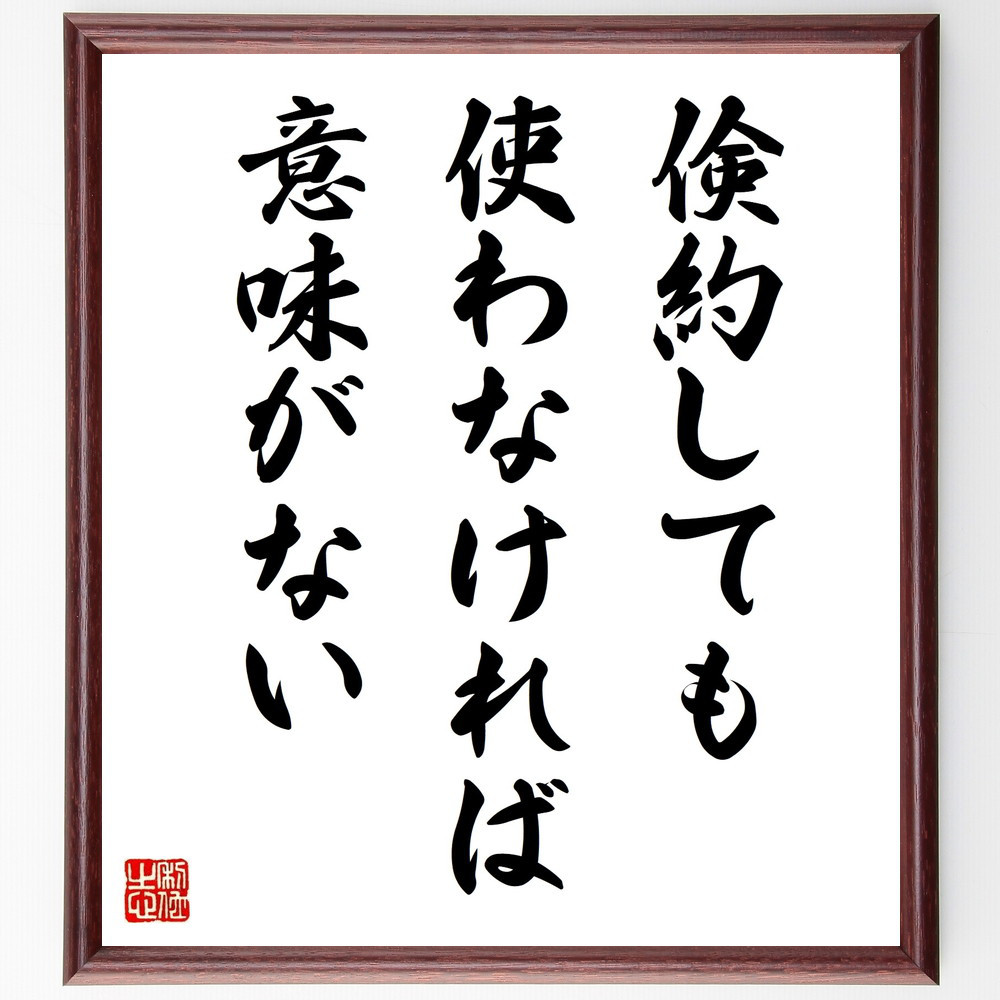 倹約しても
使わなければ
意味がない